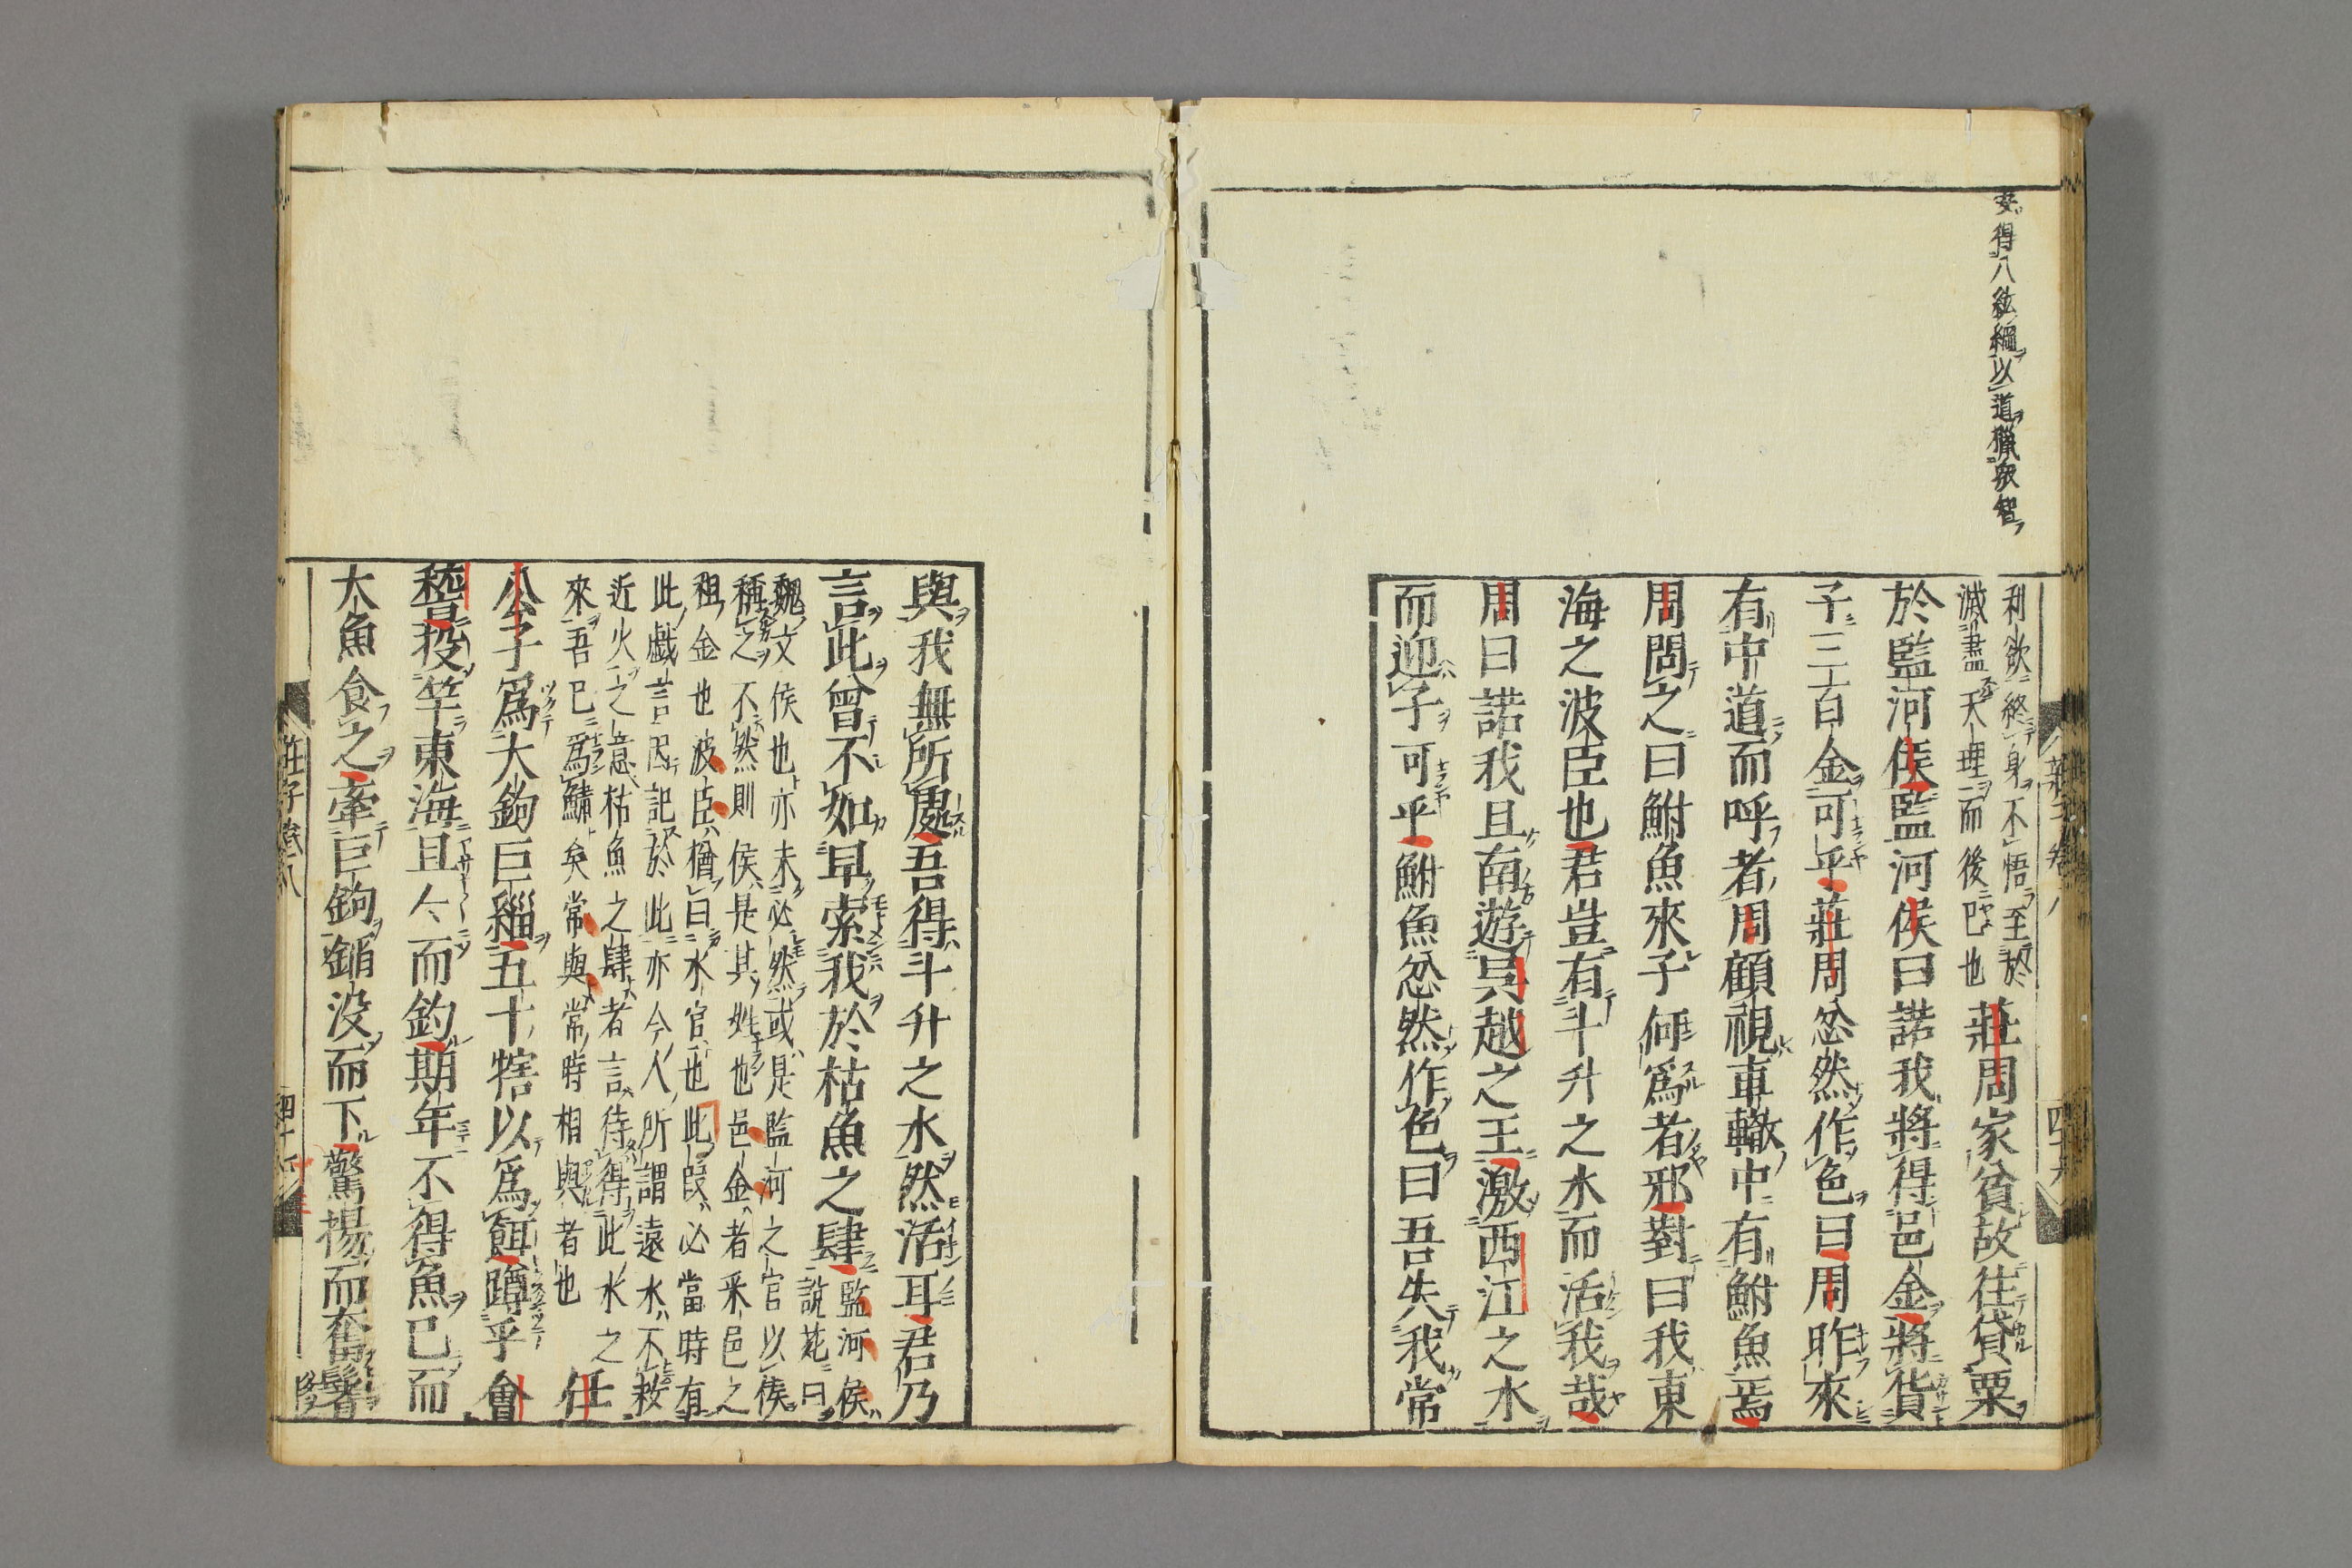 安得八紘綱以道獵衆智
莊子卷八
四十六
利欲終身不悟至於
滅盡天理而後已也
莊周家貧故往貸粟
於監河侯監河侯曰諾我將得邑金將貸
子三百金可乎莊周忿然作色曰周昨來
有中道而呼者周顧視車轍中有鮒魚焉
周問之曰鮒魚來子何爲者邪對曰我東
海之波臣也君豈有斗升之水而活我哉
周曰諾我且南遊吳越之王激西江之水
而迎子可乎鮒魚忿然作色曰吾失我常
與我無所處吾得斗升之水然活耳君乃
言此曾不如早索我於枯魚之肆
監河侯
說苑曰
魏文侯也亦未必然或是監河之官以侯
稱之不然則侯是其姓也邑金者采邑之
租金也波臣猶曰水官也此段必當時有
此戲言因記於此亦今人所謂遠水不救
近火之意枯魚之肆者言待得此水之
來吾已爲鱐矣常與常時相與者也
任
公子爲大鉤巨緇五十犗以爲餌蹲乎會
稽投竿東海旦旦而釣期年不得魚已而
大魚食之牽巨鉤錎没而下驚揚而奮鬐
莊子卷八